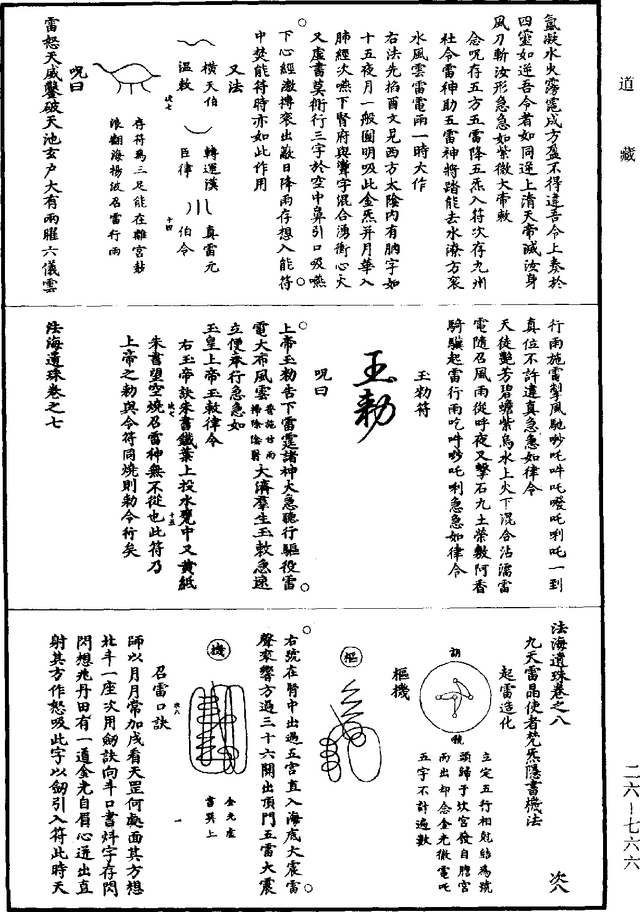 道藏
氤凝水火霶霓成方盈不得違吾令上奏於
四靈如逆吾令者如同逆上清天帝滅汝身
風刀斬汝形急急如紫微大帝敕
念呪存五方五雷降五炁入符次存九州
社令雷神助五雷神將踏能去水潦方衮
水風雲雷電雨一時大作
右法先焰酉文見西方太陰內有朒字如
十五夜月一般圓明吸此金炁并月華入
肺經次嚥下腎府與𩆜字混合湧衝心火
又虛書莫術行三字於空中鼻引口吸嚥
下心經激摶衮出敵日降雨存想入能符
中焚能符時亦如此作用
又法
橫天伯 轉運漢 真雷元
溫敕 臣律 伯令
次七 十四
存符爲三足能在離宮鼓
浪翻海揚波召雷行雨
呪曰
雷怒天威鑿破天池玄戶大有雨腥六儀雲
行雨施雷擊風馳吵吒吽吒噯吒唎吒一到
真位不許違真急急如律令
天徒艷芳碧蟾紫烏水上火下混合沾濡雷
電隨召風雨從呼夜叉擊石九土榮敷阿香
騎驥起雷行雨吃吽吵吒唎急急如律令
玉勑符
玉勅
呪曰
上帝玉勑告下雷霆諸神火急聽行驅役雷
電大布風雲普施甘雨掃除陰翳大濟羣生玉敕急速
立便奉行急急如
玉皇上帝玉敕律令
右玉帝訣朱書鐵葉上投水甕中又黃紙
次七 十五
朱書望空燒召雷神無不從也此符乃
上帝之勅與令符同燒則勅令行矣
法海遺珠卷之七
法海遺珠卷之八 次八
九天雷晶使者梵炁隱書機法
起雷造化
立定五行相尅結爲號
頭歸于坎宮發自膽宮
而出却念金光激電吒
五字不計遍數
樞機
樞
右號在腎中出過五宮直入海底大震雷
聲衮響方過三十六關出頂門五雷大震
機
金光處
書其上
召雷口訣
次八 一
師以月月常加戌看天罡何處面其方想
北斗一座次用劒訣向斗口書炓字存閃
閃想兆丹田有一道金光自眉心迸出直
射其方作怒吸此字以劒引入符此時天
二六—七六六